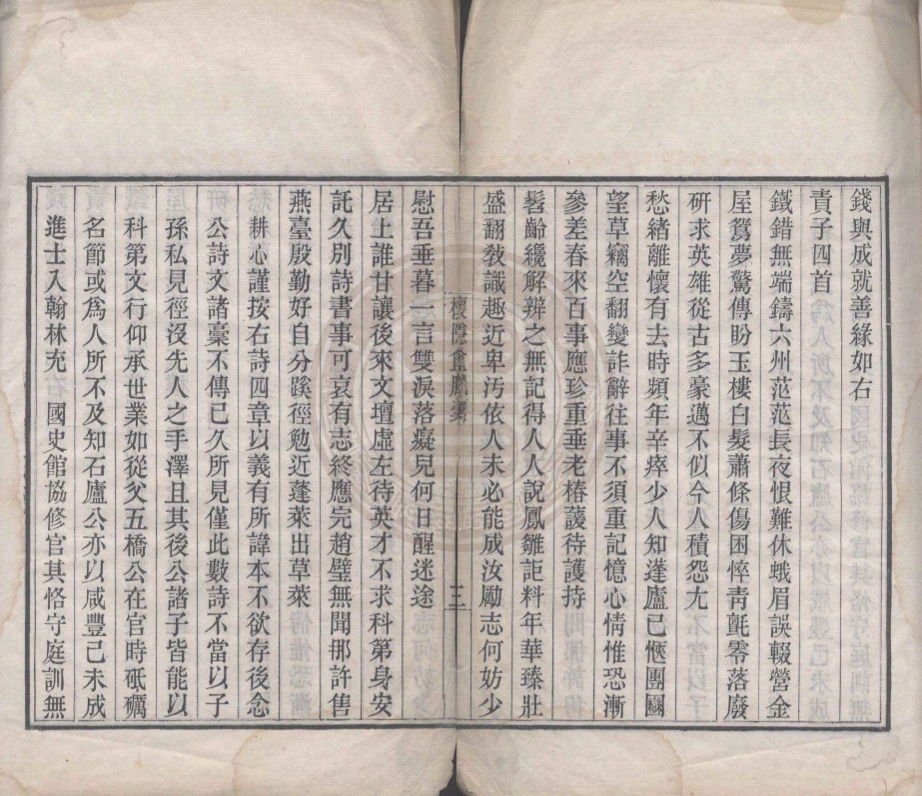 錢與成就善緣如右
責子四首
鐵錯無端鑄六州范范長夜恨難休蛾眉誤輟營金
屋鴛夢驚傳盼玉樓白髮蕭條傷困悴靑氈零落廢
硏求英雄從古多豪邁不似今人積怨尤
愁緖離懷有去時頻年辛瘁少人知蓬廬已愜團圞
望草竊空翻變詐辭往事不須重記憶心情惟恐漸
參差春來百事應珍重垂老椿蘐待護持
髫齡纔解辨之無記得人人說鳳雛詎料年華臻壯
盛翻敎識趣近卑汚依人未必能成汝勵志何妨少
慰吾垂暮一言雙淚落癡兒何日醒迷途
三
居上誰甘讓後來文壇虛左待英才不求科第身安
託久別詩書事可哀有志終應完趙璧無聞那許售
燕臺殷勤好自分蹊徑勉近蓬萊出草萊
耕心謹按右詩四章以義有所諱本不欲存後念
公詩文諸稾不傳已久所見僅此數詩不當以子
孫私見徑沒先人之手澤且其後公諸子皆能以
科第文行仰承世業如從父五橋公在官時砥礪
名節或爲人所不及知石廬公亦以咸豐己未成
進士入翰林充 國史館協修官其恪守庭訓無